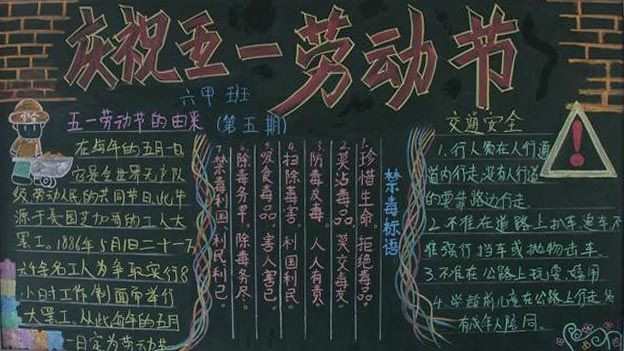 庆祝五一劳动节
六甲班
(第五期)
五一劳动节的由来
在每年的五月一日
它是全世界无产阶
级,劳动人民的共同节日。此节
源于美国芝加哥的工人大
罢工。1886年5月1日二十一万
六千余名工人为争取实行8
小时工作制而举行
大罢工。从此每年的五月
一日定为劳动节
禁毒标语
1.珍惜生命。拒绝毒品。
2.莫沾毒品。莫交毒友。
3.防毒反毒。人人有责
4.扫除毒害。利国利民
5.吸食毒品。害人害己。
6.除毒务早 除毒务尽。
7.禁毒利国、利民利己。
交通安全
1.行人需在人行道
道内行走,没有人行道
的要靠路边行走。
2.不准在道路上扒车、追车、不
准强行拦车或抛物击车
3.不准在公路上玩耍、嬉闹
4.学龄前儿童在公路上行走
有成年人陪同。